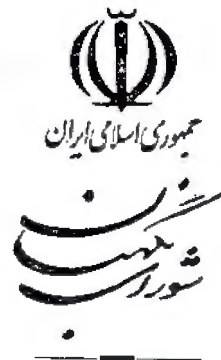 جمهوری اسلامی ایران
شورای نگهبان